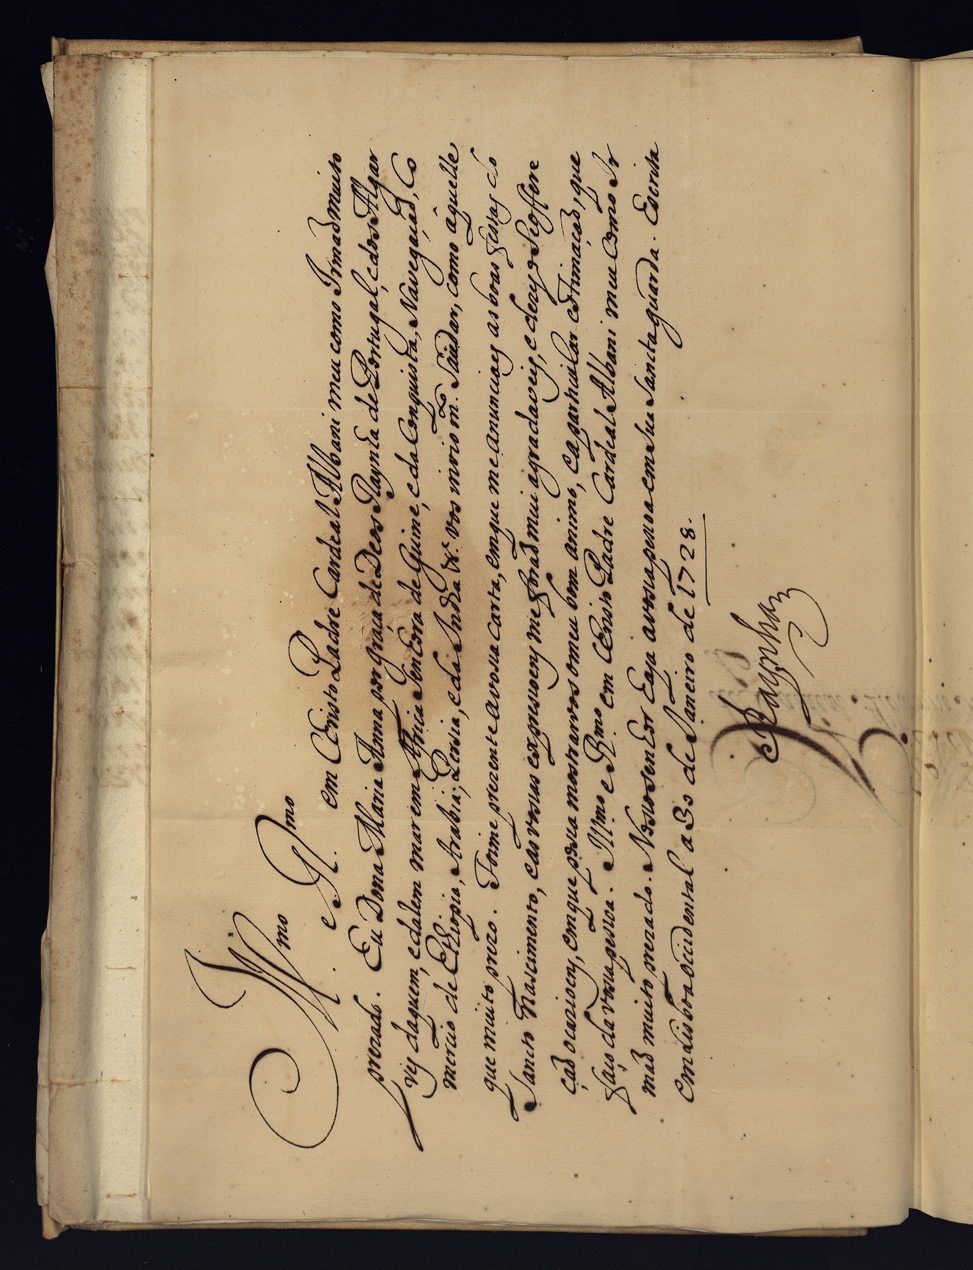 Ill.mo e R.mo
em Christo Padre Cardeal Albani meu como Irmaõ muito
prezado. Eu Dona Maria Anna por Graça de Deos Raynha de Portugal, e dos Algar
ves daquem, e dalem mar em Africa Senhora de Guine, e da Conquista, Navegaçaõ, Co
mercio de Ethiopia, Arabia, Persia, e da India &.ª vos invio m.to Saudar, como aquelle
que muito prezo. Foime prezente a vossa carta, em que me anunciaes as boas festas do
Sancto Nascimento, e as vossas expressoens me foraõ mui agradaveis, e dezejo se offere
çaõ ocazioens, em que possa mostrarvos o meu bom animo, e a particular estimaçaõ, que
faço da vossa pessoa. Ill.mo e R.mo em Christo Padre Cardeal Albani meu Como Ir
maõ muito prezado. Nosso Senhor haja a vossa pessoa em Sua Sancta guarda. Escrita
em Lisboa Occidental a 30 de Janeiro de 1728.
Raynha